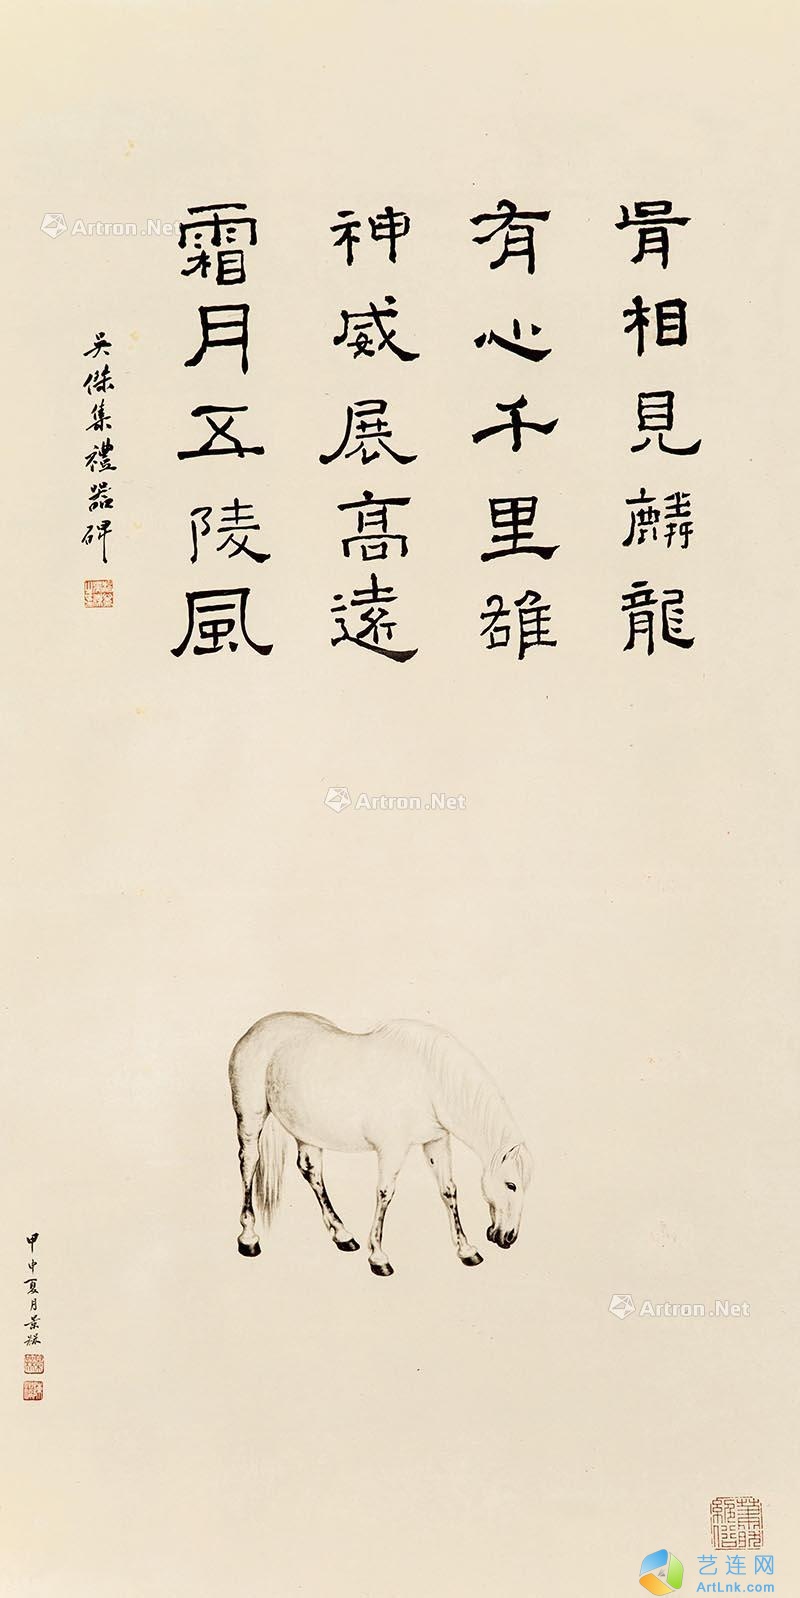 骨相見麟龍
有心千里雄
神威展高遠
霜月五陵風
吳傑集禮器碑
甲申夏月
Artron.Net
Artron.Net
Artron.Net
艺连网
ArtLnk.com